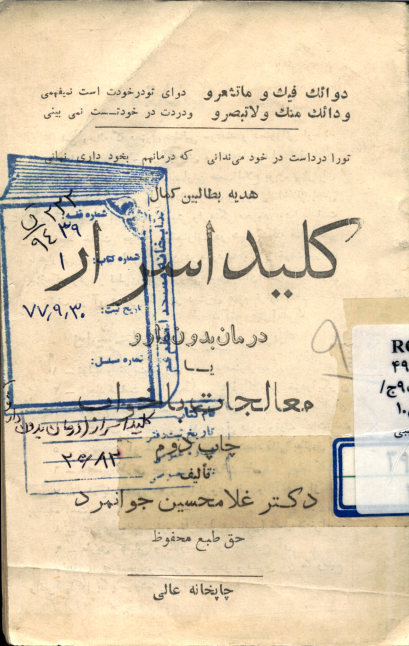 دوائك فيك و ماتشعرو دوای تودرخودت است نمیفهمی
ودائك منك ولاتبصرو ودردت در خودتست نمی بینی
تورا درداست در خود می‌ندانی که درمانهم بخود داری نهانی
هدیه بطالبین کمال
کلید اسرار
درمان بدون دارو
یــا
معالجات با خوراک
چاپ دوم
تألیف
دکتر غلامحسین جوانمرد
حق طبع محفوظ
چاپخانه عالی
شماره قفسه:
۹۴۳۹
شماره کتاب:
۱
تاریخ ثبت:
۷۷,۹,۳۰
شماره مسلسل:
کلید اسرار (درمان بدون دارو
نام کتاب
تاریخ ثبت دفتر